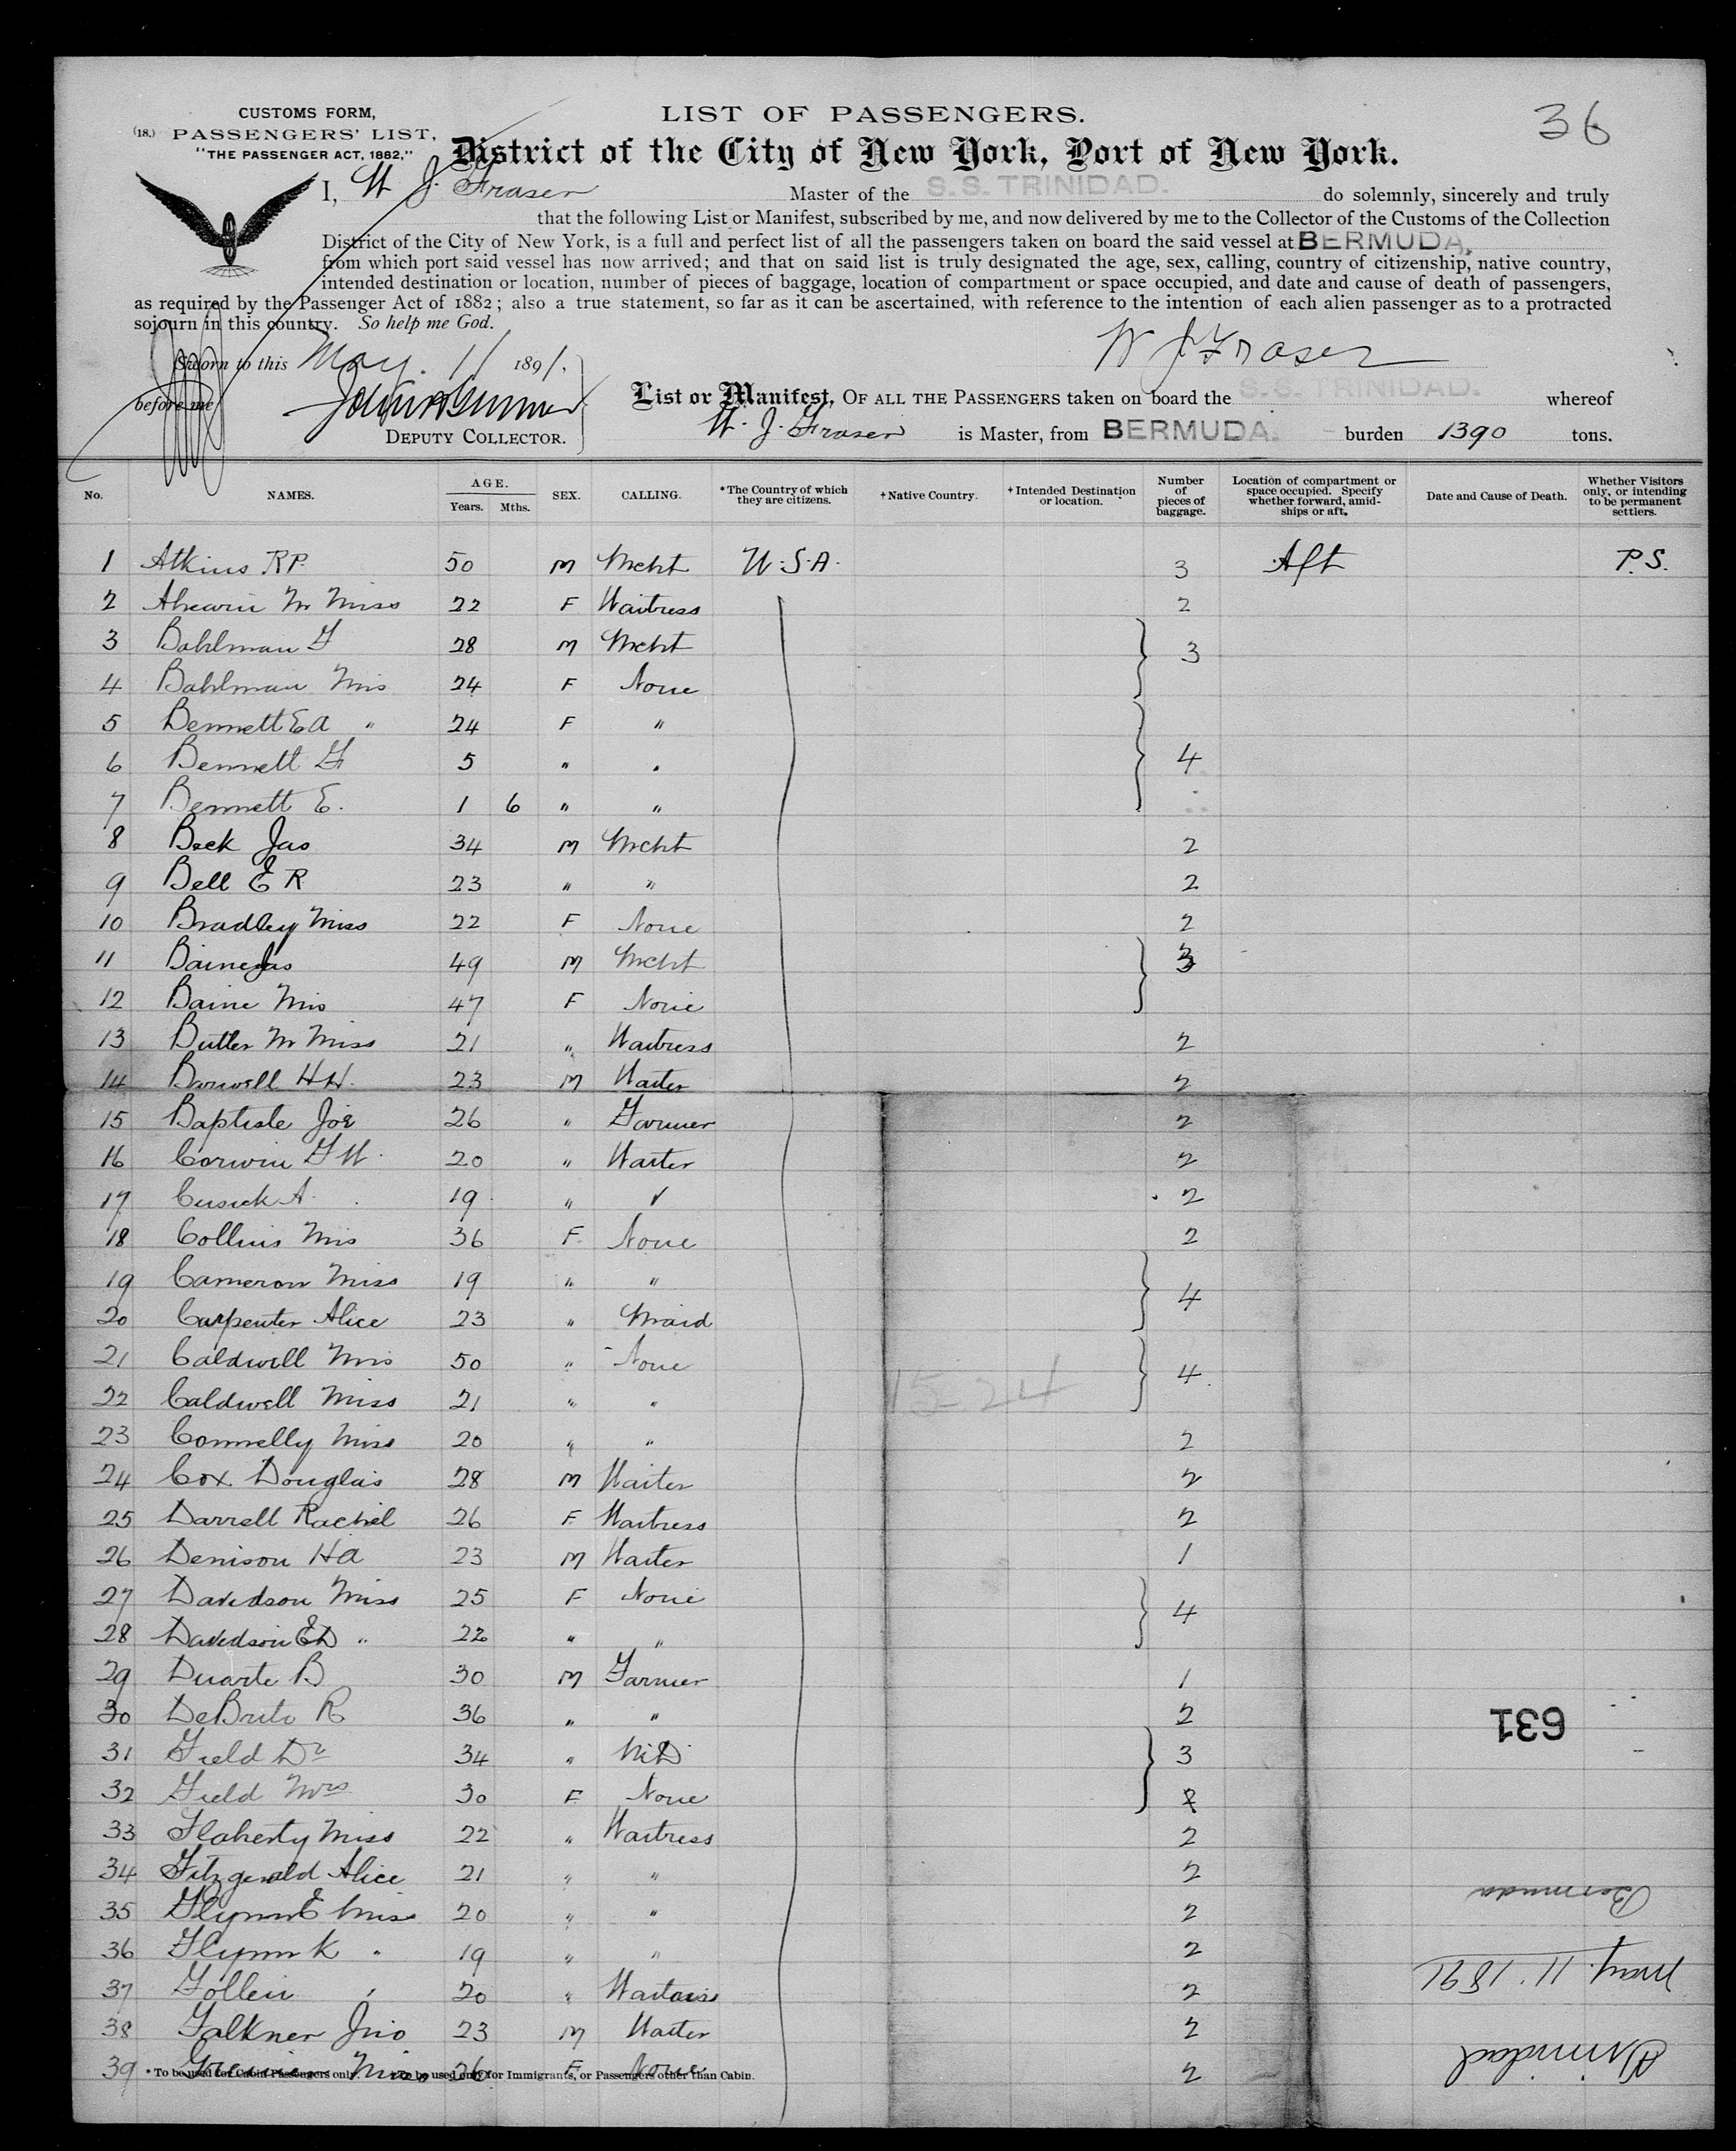 36
CUSTOMS FORM,
(18.) PASSENGERS' LIST,
"THE PASSENGER ACT, 1882,"
LIST OF PASSENGERS.
District of the City of New York, Port of New York.
I, W J. Fraser Master of the S.S. TRINIDAD. do solemnly, sincerely and truly
that the following List or Manifest, subscribed by me, and now delivered by me to the Collector of the Customs of the Collection
District of the City of New York, is a full and perfect list of all the passengers taken on board the said vessel at BERMUDA,
from which port said vessel has now arrived; and that on said list is truly designated the age, sex, calling, country of citizenship, native country,
intended destination or location, number of pieces of baggage, location of compartment or space occupied, and date and cause of death of passengers,
as required by the Passenger Act of 1882; also a true statement, so far as it can be ascertained, with reference to the intention of each alien passenger as to a protracted
sojourn in this country. So help me God.
W J Fraser
Sworn to this May. 11 1891.
before me
DEPUTY COLLECTOR.
List or Manifest, OF ALL THE PASSENGERS taken on board the S.S. TRINIDAD. whereof
W. J. Fraser is Master, from BERMUDA. burden 1390 tons.
No. NAMES. AGE. Years. Mths. SEX. CALLING. *The Country of which they are citizens. †Native Country. †Intended Destination or location. Number of pieces of baggage. Location of compartment or space occupied. Specify whether forward, amidships or aft. Date and Cause of Death. Whether Visitors only, or intending to be permanent settlers.
1 Atkins R P. 50 M Mcht U.S.A. 3 Aft P.S.
2 M Miss 22 F Waitress 2
3 Bahlman G 28 M Mcht 3
4 Bahlman Mrs 24 F None
5 Bennett E A " 24 F "
6 Bennett G 5 " " 4
7 Bennett E. 1 6 " "
8 Beck Jas 34 M Mcht 2
9 Bell E R 23 " " 2
10 Bradley Miss 22 F None 2
11 Baine Jas 49 M Mcht 3
12 Baine Mrs 47 F None
13 Butler M Miss 21 " Waitress 2
14 H H. 23 M Waiter 2
15 Baptiste Joe 26 " Farmer 2
16 Corwin G W. 20 " Waiter 2
17 Cusick A. 19 " " 2
18 Collins Mrs 36 F None 2
19 Cameron Miss 19 " "
20 Carpenter Alice 23 " Maid 4
21 Caldwell Mrs 50 " None
22 Caldwell Miss 21 " " 4
15 24
23 Connelly Miss 20 " " 2
24 Cox Douglas 28 M Waiter 2
25 Darrell Rachel 26 F Waitress 2
26 Denison H A 23 M Waiter 1
27 Davidson Miss 25 F None
28 Davidson E D " 22 " " 4
29 Duarte B 30 M Farmer 1
30 DeBrito R 36 " " 2
631
31 Field Dr 34 " M.D. 3
32 Field Mrs 30 F None
33 Flaherty Miss 22 " Waitress 2
34 Fitzgerald Alice 21 " " 2
35 Flynn E Miss 20 " " 2
36 Flynn K " 19 " " 2
37 " 20 " Waitress 2
38 Falkner Jno 23 M Waiter 2
39 Miss 26 F None 2
* To be used for Cabin Passengers only. † To be used only for Immigrants, or Passengers other than Cabin.
Trinidad
May. 11. 1891
Bermuda